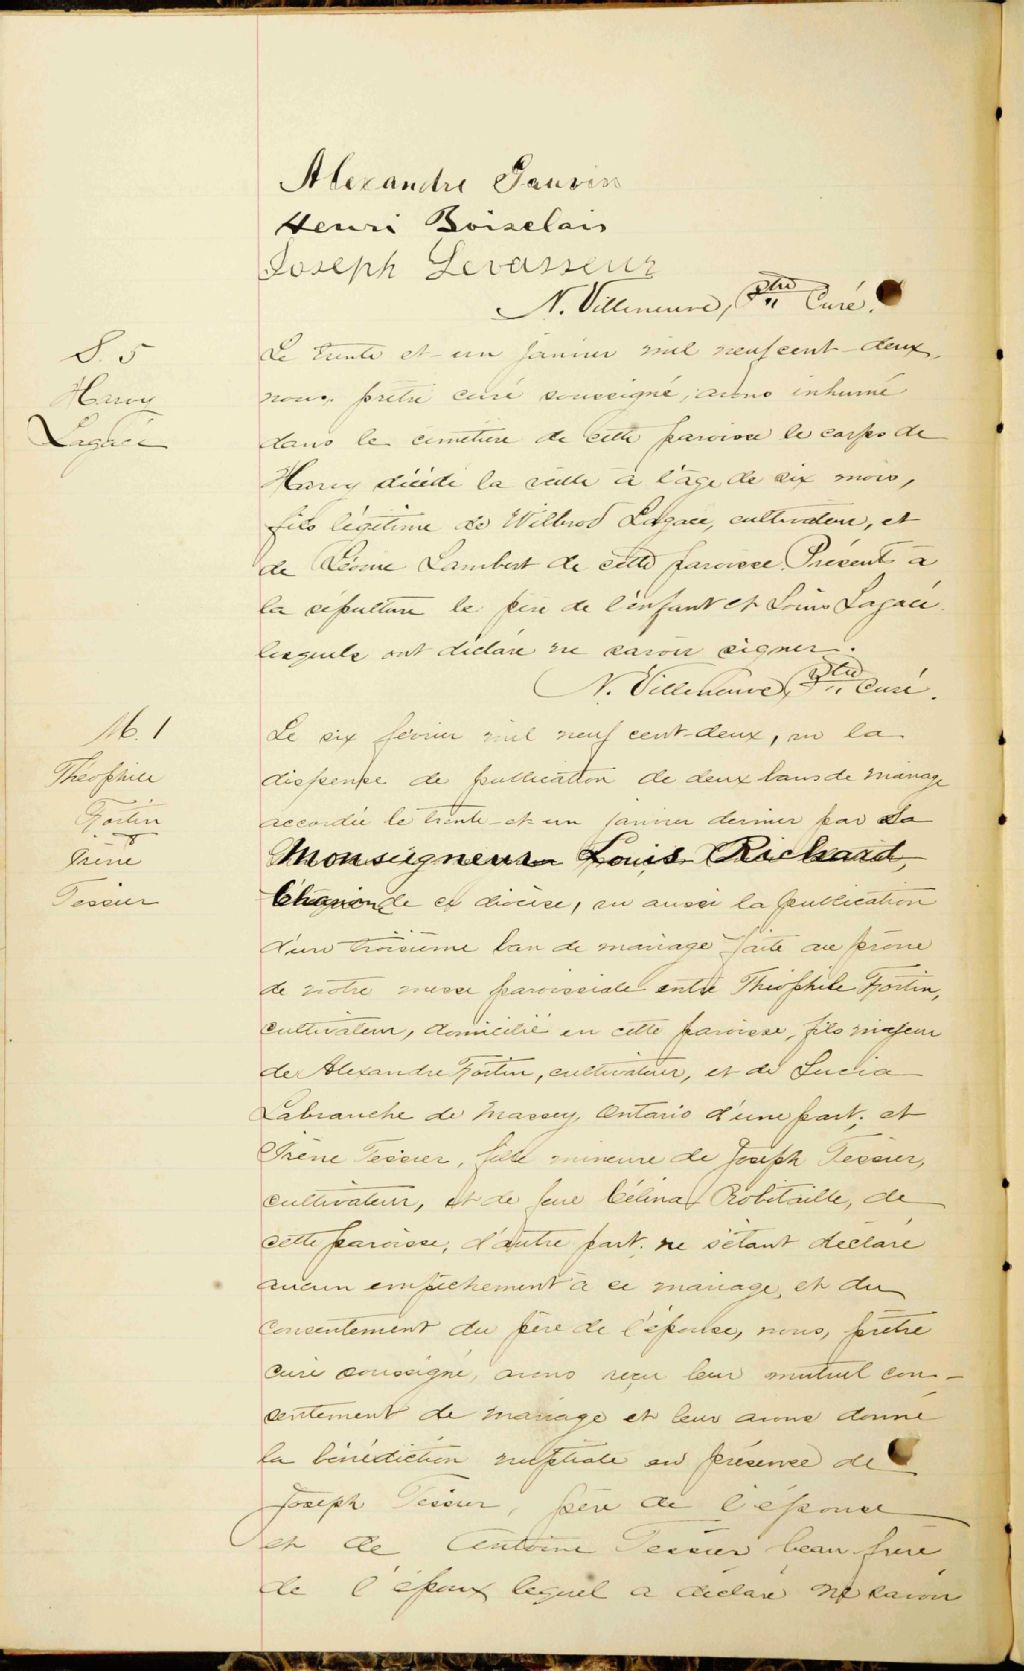 Alexandre Gauvin
Henri Boisclais
Joseph Levasseur
N. Villeneuve, Ptre Curé.
S. 5
Harvy
Lagacé
Le trente et un janvier mil neuf cent-deux,
nous, prêtre curé soussigné, avons inhumé
dans le cimetière de cette paroisse le corps de
Harvy décédé la veille à l'âge de six mois,
fils légitime de Wilbrod Lagacé, cultivateur, et
de Léonie Lambert de cette paroisse. Présents à
la sépulture le père de l'enfant et Louis Lagacé
lesquels ont déclaré ne savoir signer.
N. Villeneuve, Ptre Curé.
M. 1
Théophile
Fortin
&
Irène
Tessier
Le six février mil neuf cent-deux, vu la
dispense de publication de deux bans de mariage
accordée le trente-et-un janvier dernier par Sa
Monseigneur Louis Richard,
de ce diocèse, vu aussi la publication
d'un troisième ban de mariage faite au prône
de notre messe paroissiale entre Théophile Fortin,
cultivateur, domicilié en cette paroisse, fils majeur
de Alexandre Fortin, cultivateur, et de Lucia
Labranche de Massey, Ontario d'une part; et
Irène Tessier, fille mineure de Joseph Tessier,
cultivateur, et de feue Célina Robitaille, de
cette paroisse, d'autre part; ne s'étant déclaré
aucun empêchement à ce mariage, et du
consentement du père de l'épouse, nous, prêtre
curé soussigné, avons reçu leur mutuel con-
sentement de mariage et leur avons donné
la bénédiction nuptiale en présence de
Joseph Tessier, père de l'épouse
et de Antoine Tessier beau-frère
de l'époux lequel a déclaré ne savoir